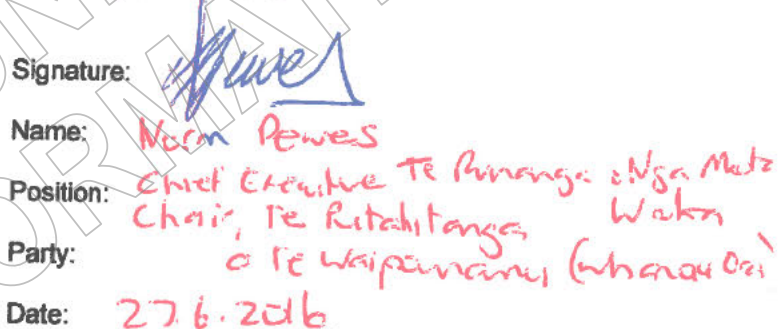 Signature:
Name: Norm Dewes
Position: Chief Executive Te Runanga o Nga Mata
Chair, Te Putahitanga Waka
Party: o Te Waipounamu (whanau Ora)
Date: 27.6.2016